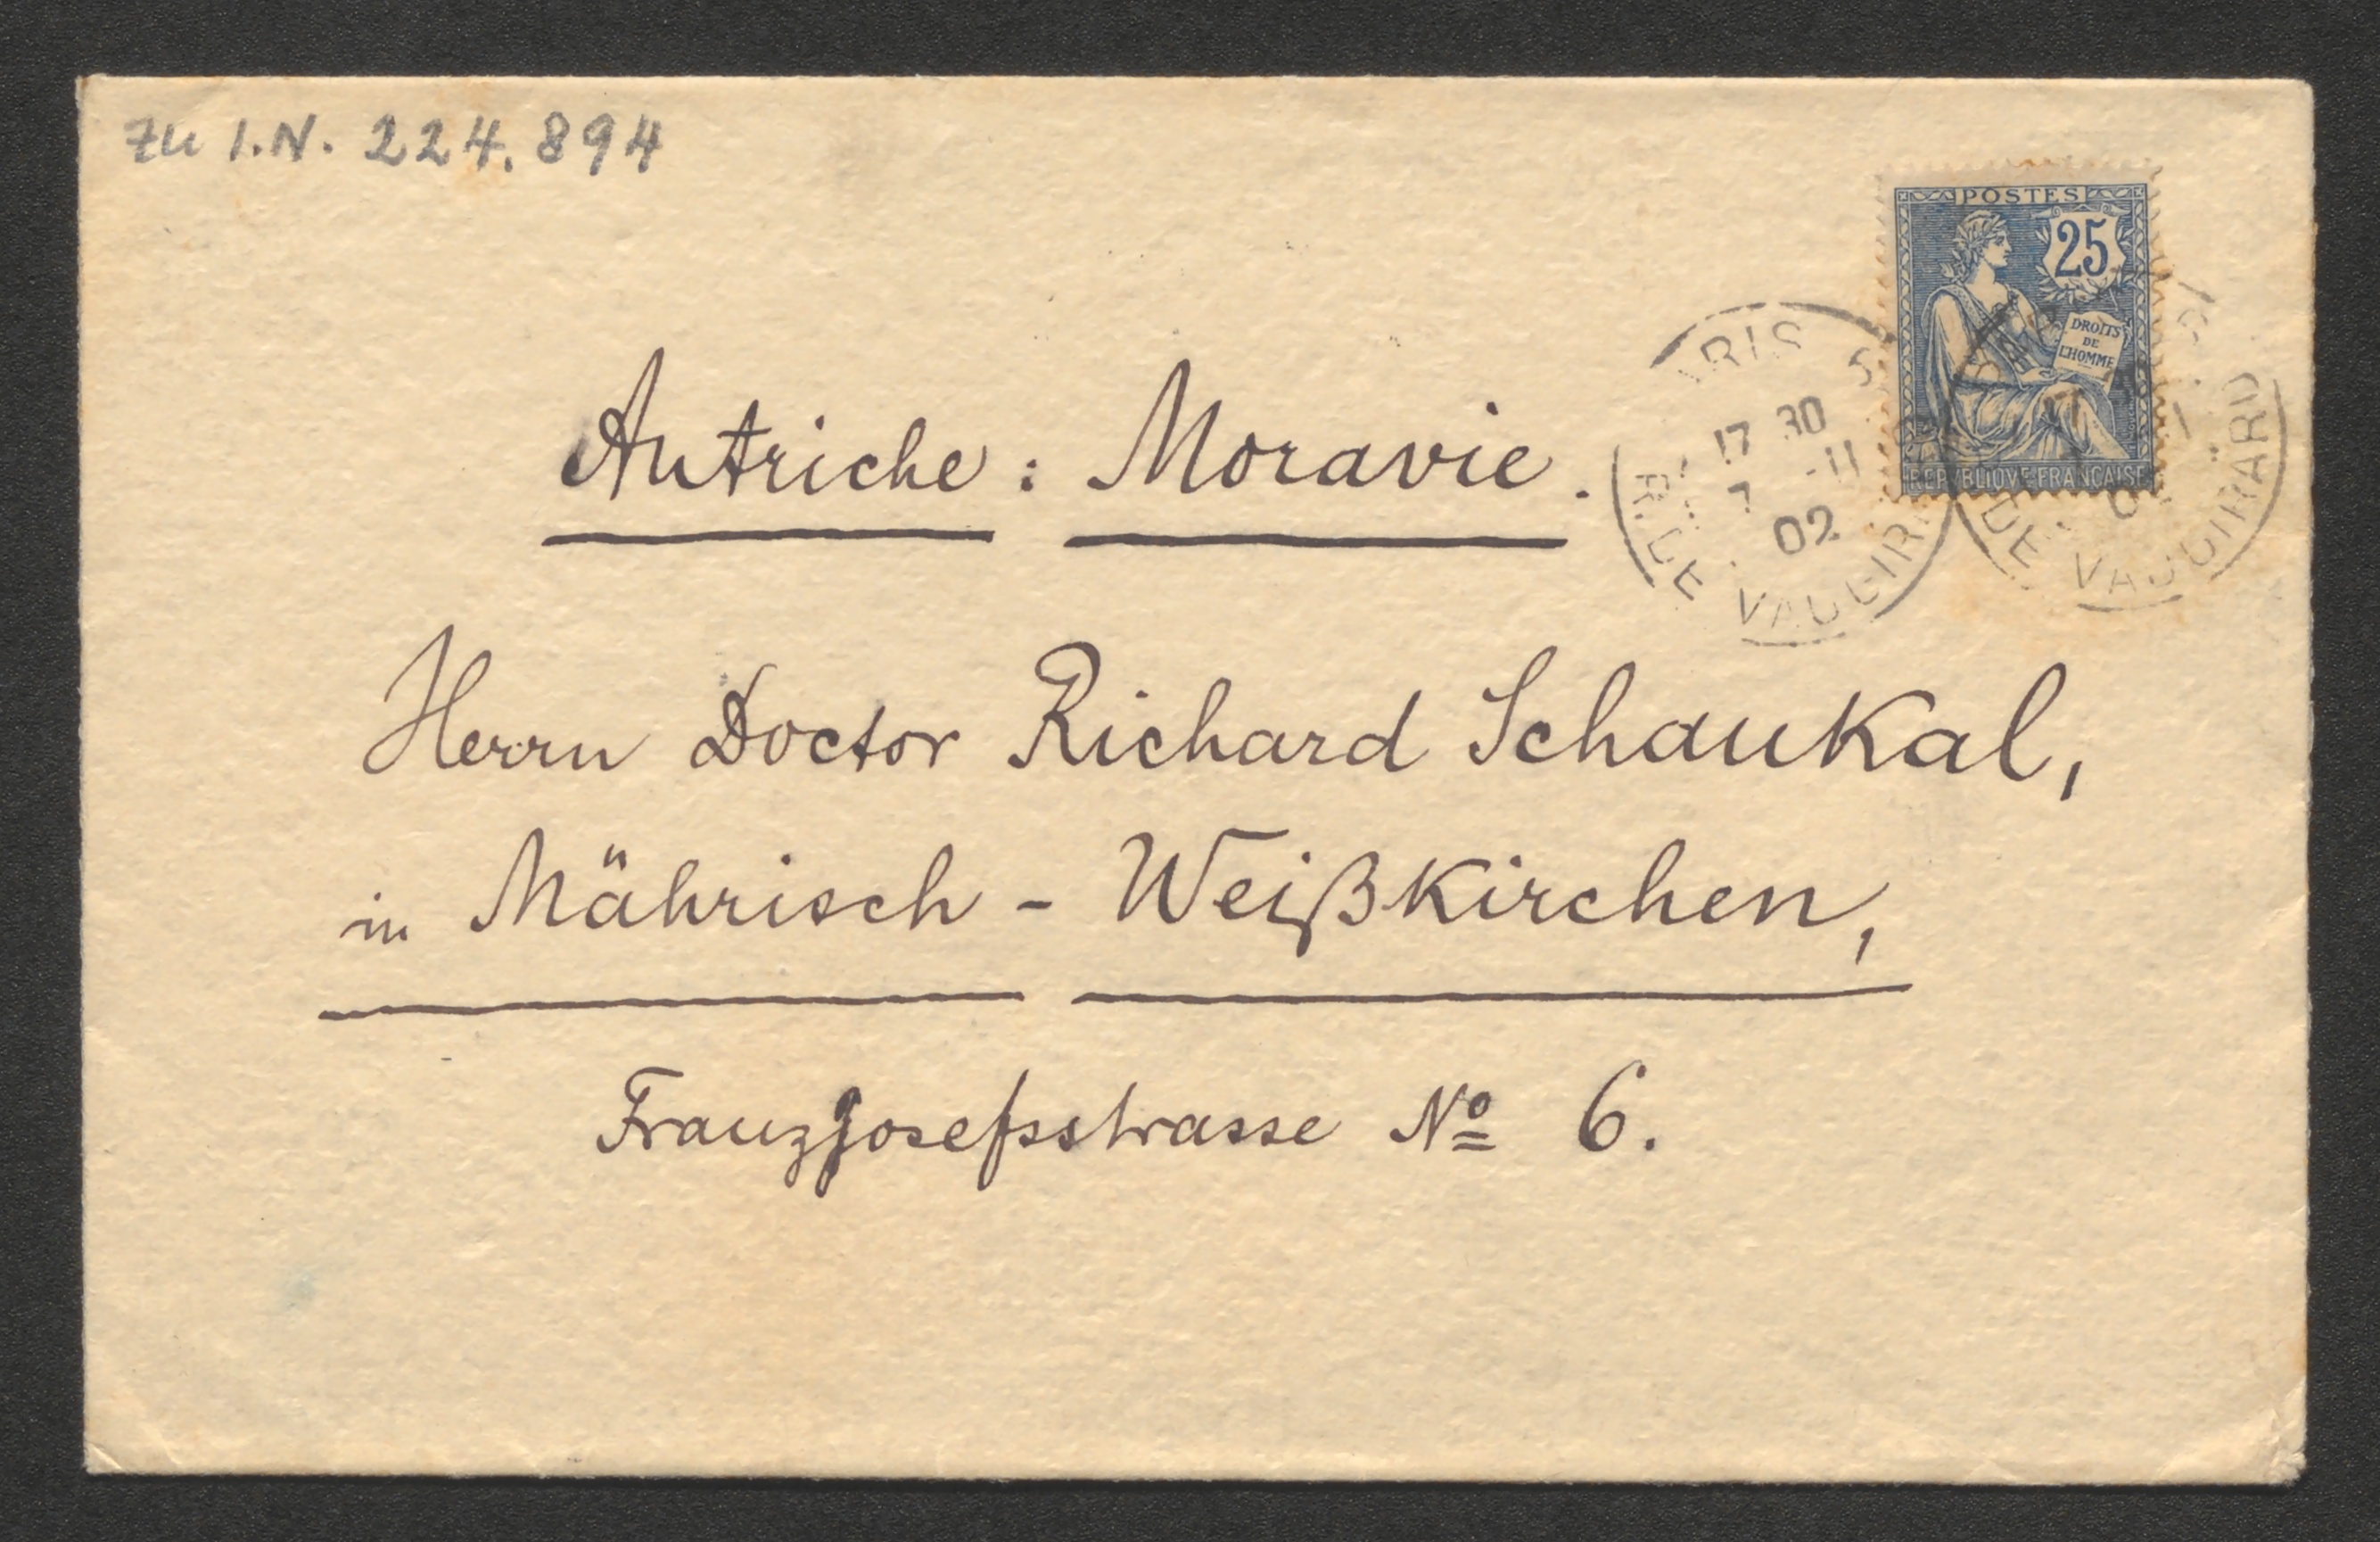 zu I.N. 224.894
POSTES
25
DROITS
DE
L'HOMME
REPVBLIQVE FRANÇAISE
17 30
7 -11
02
R. DE VAUGIRARD
DE VAUGIRARD
Autriche : Moravie.
Herrn Doctor Richard Schaukal,
in Mährisch - Weißkirchen,
Franzjosefsstrasse Nº 6.